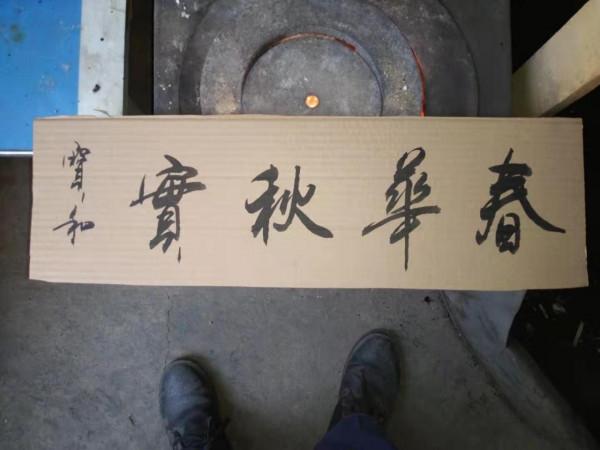 春華秋實
寳和